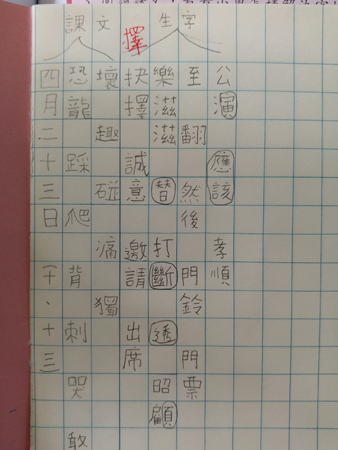 課文 擇 生字
四月二十三日(十、十三)
恐龍 踩 爬 背 刺 哭 敢
壞 趣 碰 痛 獨
抉擇 誠意 邀請 出席
樂滋滋 替 打斷 透 昭顧
至 翻 然後 門鈴 門票
公演 應該 孝順